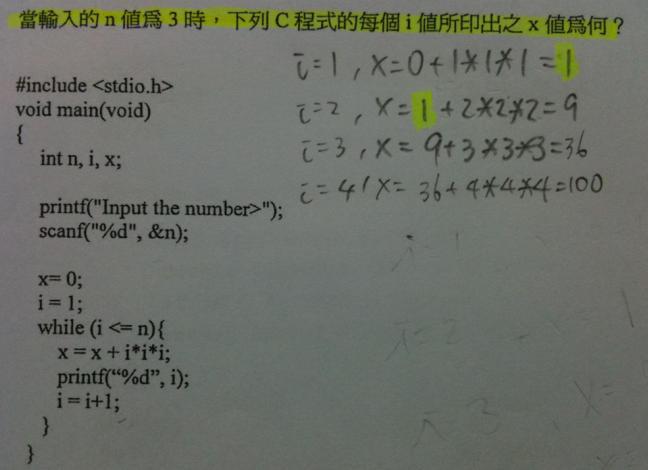 當輸入的 n 值為 3 時，下列 C 程式的每個 i 值所印出之 x 值為何？
i=1, x=0+1*1*1=1
i=2, x=1+2*2*2=9
i=3, x=9+3*3*3=36
i=4, x=36+4*4*4=100
#include <stdio.h>
void main(void)
{
int n, i, x;
printf("Input the number>");
scanf("%d", &n);
x= 0;
i = 1;
while (i <= n){
x = x + i*i*i;
printf(“%d”, i);
i = i+1;
}
}